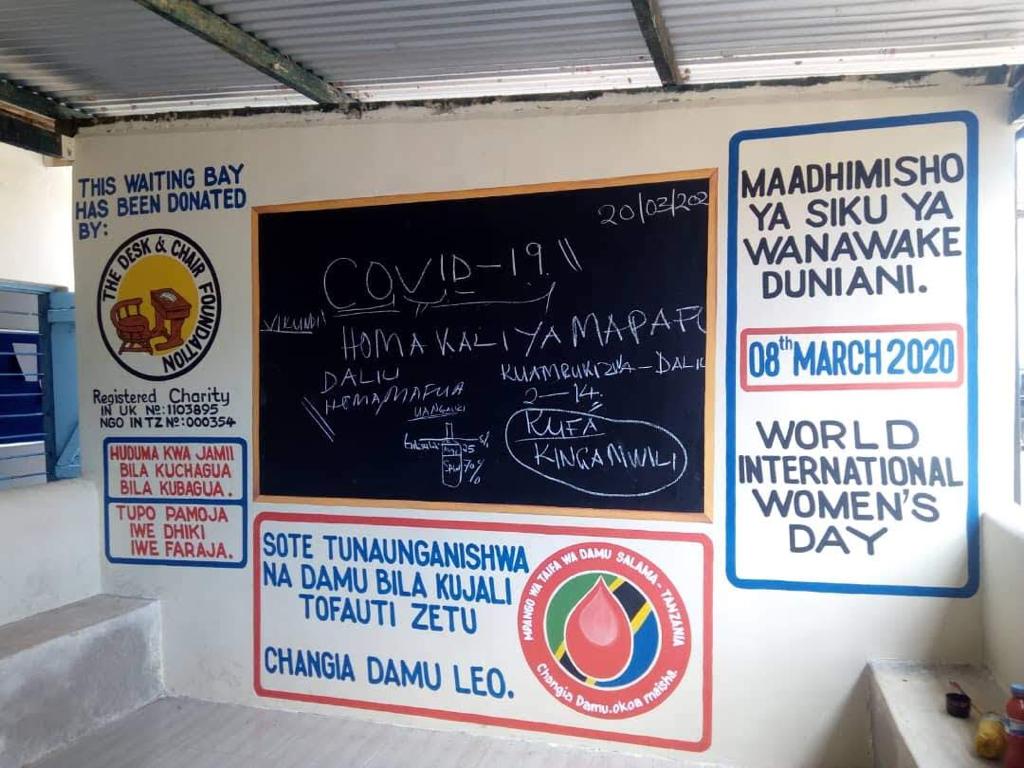 THIS WAITING BAY
HAS BEEN DONATED
BY:
THE DESK & CHAIR FOUNDATION
Registered Charity
IN UK Nº:1103895
NGO IN TZ Nº:000354
HUDUMA KWA JAMII
BILA KUCHAGUA
BILA KUBAGUA.
TUPO PAMOJA
IWE DHIKI
IWE FARAJA.
20/03/202
COVID-19
VIKUNDI
HOMA KALI YA MAPAFU
DALILI
HOMA, MAFUA
KUAMBUKIZWA - DALILI
2-14
KUFA
KINGA MWILI
25
70%
SOTE TUNAUNGANISHWA
NA DAMU BILA KUJALI
TOFAUTI ZETU
CHANGIA DAMU LEO.
MPANGO WA TAIFA WA DAMU SALAMA - TANZANIA
Changia Damu, okoa maisha
MAADHIMISHO
YA SIKU YA
WANAWAKE
DUNIANI.
08th MARCH 2020
WORLD
INTERNATIONAL
WOMEN'S
DAY